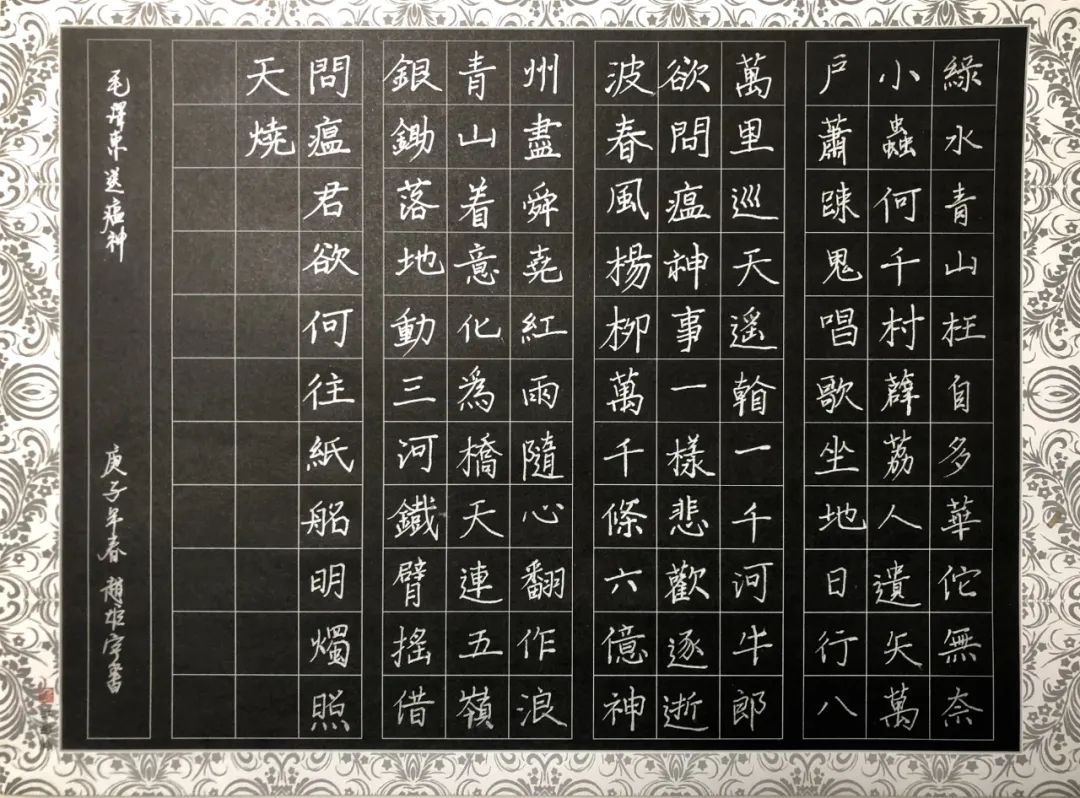 綠水青山枉自多華佗無奈
小蟲何千村薜荔人遺矢萬
戶蕭疎鬼唱歌坐地日行八
萬里巡天遥看一千河牛郎
欲問瘟神事一樣悲歡逐逝
波春風楊柳萬千條六億神
州盡舜堯紅雨隨心翻作浪
青山着意化爲橋天連五嶺
銀鋤落地動三河鐵臂搖借
問瘟君欲何往紙船明燭照
天燒
毛澤東送瘟神
庚子年春 趙宇書